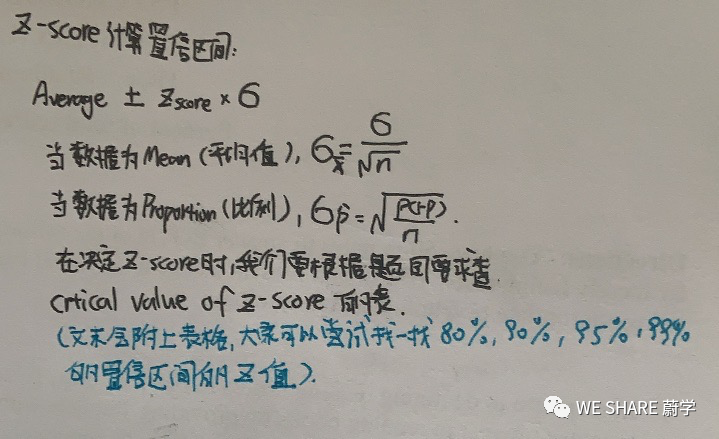 Z-score 计算置信区间:
Average ± Zscore × σ
当数据为Mean (平均值), σx̄ = σ/√n
当数据为Proportion (比例), σp̂ = √(p(1-p)/n).
在决定Z-score时,我们要根据题目要求查
crtical value of z-score 的表.
(文末会附上表格,大家可以尝试找一找 80%, 90%, 95%, 99%
的置信区间的Z值).
WE SHARE 蔚学